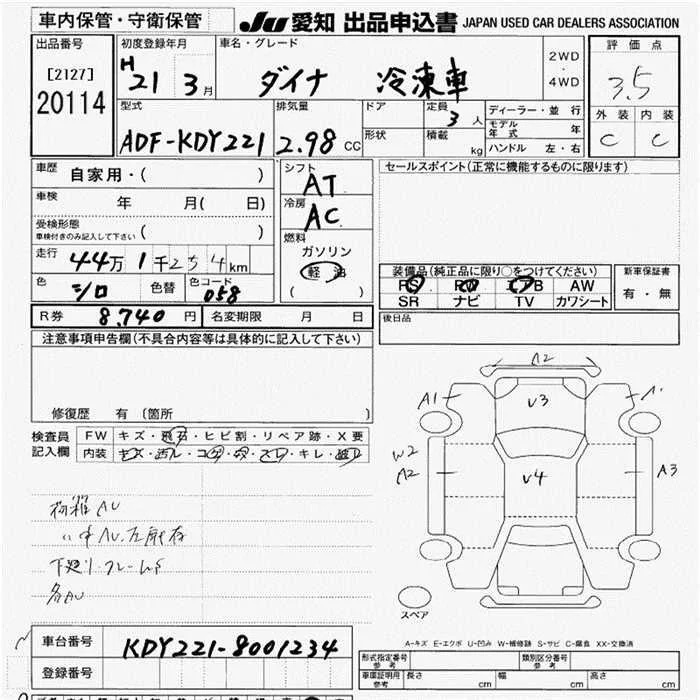 車内保管・守衛保管
JU 愛知 出品申込書 JAPAN USED CAR DEALERS ASSOCIATION
出品番号
[2127]
20114
初度登録年月
H 21 3月
車名・グレード
ダイナ 冷凍車
2WD
・
4WD
評価点
3.5
外装 内装
C C
型式
ADF-KDY221
排気量
2.98 CC
ドア
形状
定員
3 人
積載
kg
ディーラー・並行
モデル年式 年
ハンドル 左・右
車歴
自家用・( )
車検
年 月( 日)
受検形態
車検付きのみ記入して下さい ( )
走行
44万1千254km
色
シロ
色替
色コード
058
シフト
AT
冷房
AC
燃料
ガソリン
軽油
( )
セールスポイント(正常に機能するものに限ります)
装備品(純正品に限り○をつけてください)
PS PW エアB AW
SR ナビ TV カワシート
新車保証書
有・無
R券 8,740円
名変期限 月 日
後日品
注意事項申告欄(不具合内容等は具体的に記入して下さい)
修復歴 有(箇所 )
検査員
記入欄
FW キズ・飛石・ヒビ割・リペア跡・X要
内装 キズ・汚れ・コゲ・穴・スレ・キレ・破れ
AU
下廻り・フレームS
各AU
A2
A1
V3
W2
A2
V4
A3
スペア
A-キズ E-エクボ U-凹み W-補修跡 S-サビ C-腐食 XX-交換済
車台番号
KDY221-8001234
登録番号
型式指定番号
参考
類別区分番号
参考
車庫証明用
参考
長さ cm 幅 cm 高さ cm